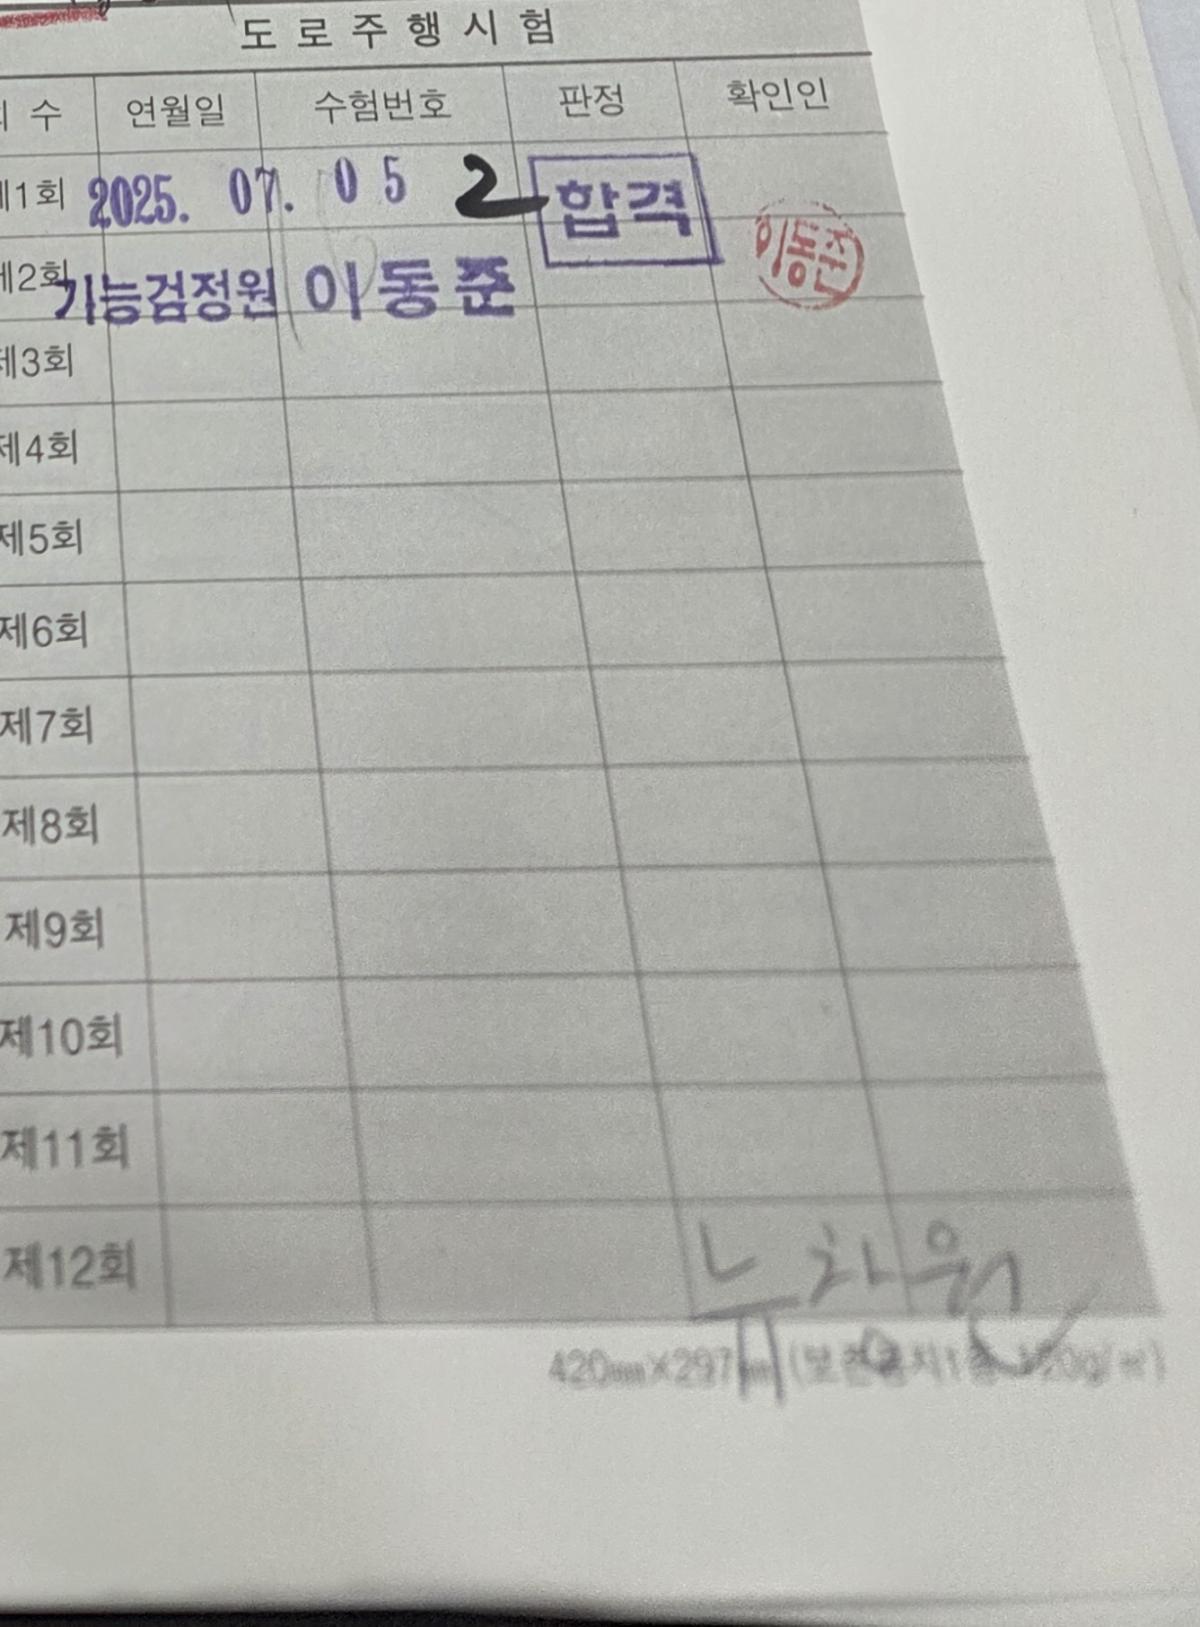 도로주행시험
수 연월일 수험번호 판정 확인인
제1회 2025. 07. 05 2 합격
이동준
제2회 기능검정원 이동준
제3회
제4회
제5회
제6회
제7회
제8회
제9회
제10회
제11회
제12회
420㎜×297㎜